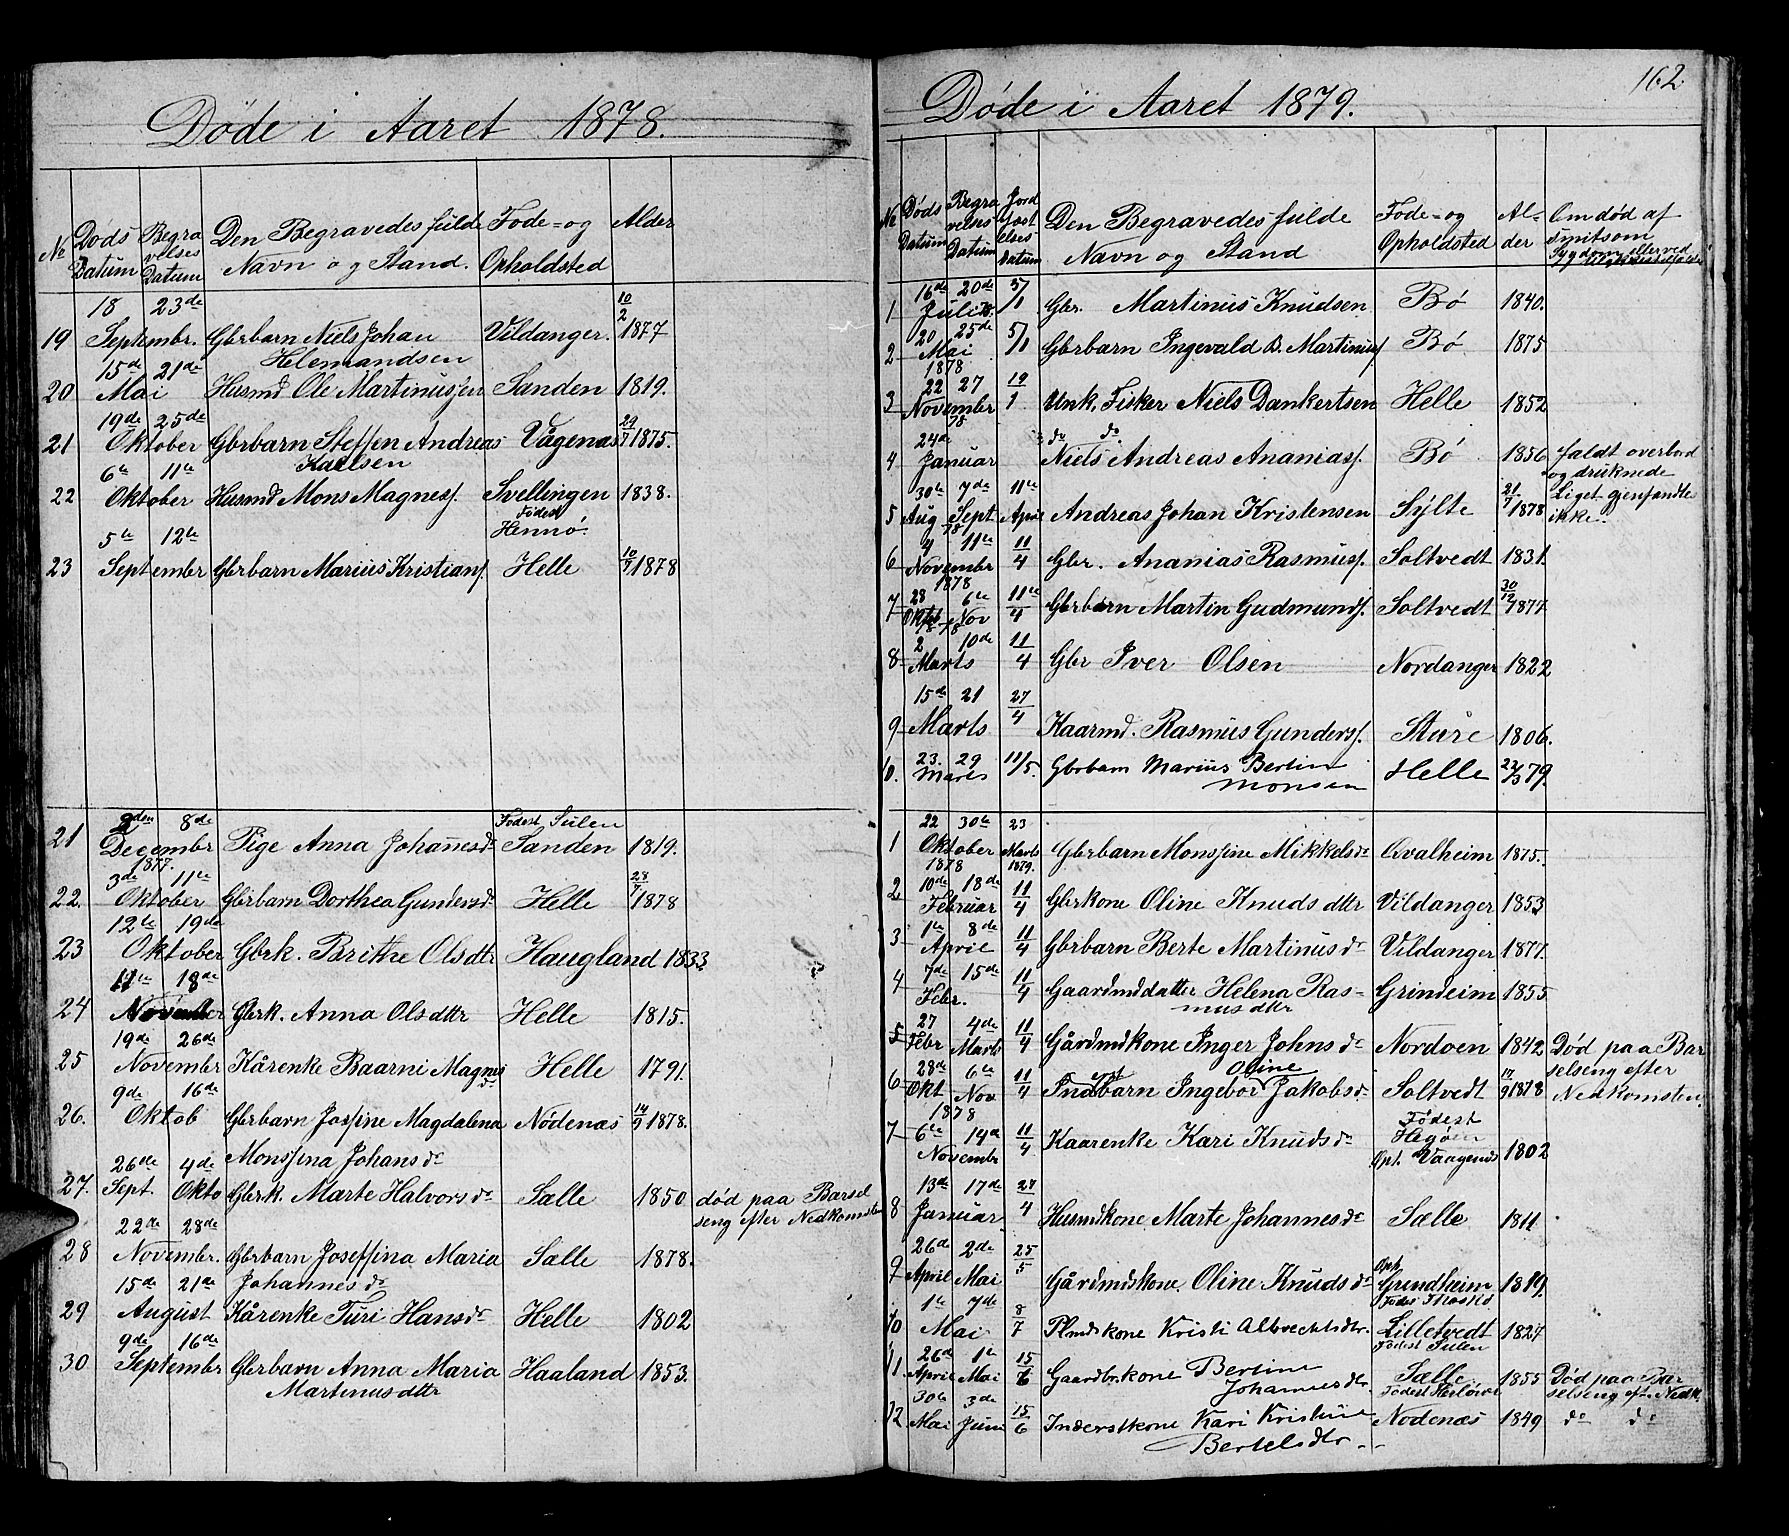 Døde i Aaret 1878.
No Døds Datum Begravelses Datum Den Begravedes fulde Navn og Stand. Føde- og Opholdsted Alder
19 18 Septembr. 23de Gbrbarn Niels Johan Helemandsen Vildanger. 10/2 1877
20 15de Mai 21de Husmd Ole Martinussen Sanden 1819.
21 19de Oktober 25de Gbrbarn Steffen Andreas Karlsen Vågenæs 29/7 1875.
22 6te Oktober 11te Husmd Mons Magness. Svellingen Fødest Hennø. 1838.
23 5te September 12te Gbrbarn Marius Kristians. Helle 10/7 1878
21 2den December 1877. 8de Pige Anna Johanesdr Fødest Sulen Sanden 1819.
22. 3de Oktober 11te Gbrbarn Dorthea Gundersdr Helle 28/7 1878
23 12te Oktober 19de Gbrk. Brithe Olsdtr Haugland 1833.
24 11te November 18de Gbrk. Anna Olsdttr Helle 1815.
25 19de November 26de Kårenke Baarni Magnusdr Helle 1791.
26. 9de Oktob 16de Gbrbarn Jossine Magdalena Monssina Johansdr Nødenæs 14/9 1878.
27. 26de Sept. 4de Okto Gbrk. Marte Halvorsdr Sælle 1850. død paa Barselseng efter Nedkomsten
28 22de Novembr. 28de Gbrbarn Joseffina Maria Johannesdr Sælle 1878.
29 15de August 21de Kårenke Turi Hansdr Helle 1802
30 9de September 16de Gbrbarn Anna Maria Martinusdttr Haaland 1853.
162.
Døde i Aaret 1879.
No Døds Datum Begravelses Datum Jordfæstelses Datum Den Begravedes fulde Navn og Stand Føde- og Opholdsted Alder Om død af Smitsom Sygdom eller ved
1 16de Juli 20de 78. 5/1 Gbr. Martinus Knudsen Bø 1840.
2 20 Mai 1878 25de 5/1 Gbrbarn Ingevald B. Martinius. Bø 1875
3 22 November 78 27 19/1 Unk. Fisker Niels Dankertsen Helle 1852
4 24de Januar do do Niels Andreas Ananias. Bø 1856 faldt overbord og druknede Liget gjenfandtes ikke.
5 30te Aug 7de Sept 78 11te April Andreas Johan Kristensen Sylte 21/7 1878
6 4 November 1878 11te 11/4 Gbr. Ananias Rasmuss. Soltvedt 1831.
7 28 Oktob 78 6te Nov 78 11te/4 Gbrbarn Martin Gudmunds. Soltvedt 30/12 1877
8 2 Marts 10de 11/4 Gbr Iver Olsen Nordanger 1822
9 15de Marts 21 27/4 Kaarmd. Rasmus Gunders. Sture 1806.
10. 23. Marts 29 11/5. Gbrbarn Marius Bertin Monsen Helle 22/3 79.
1 22 Oktober 1878 30te 23 Marts 1879. Gbrbarn Monssine Mikkelsdr Qvalheim 1875.
2 10de Februar 18de 11/4 Gbrkone Oline Knudsdttr Vildanger 1853
3 1te April 8de 11/4 Gbrbarn Berte Martinusdr Vildanger 1877.
4 7de Febr. 15de 11/4 Gaardmddatter Helena Rasmusdttr Grindeim 1855
5 27 Febr 4de Marts 11/4 Gårdmdkone Inger Johnsdr Nordøen 1842 Død paa Barselseng efter Nedkomsten.
6 28de Okt 1878 6te Nov 11/4 Indstbarn Ingebor Oline Jakobsdr Soltvedt 17/9 1878
7 6te November 14de 11/4 Kaarenke Kari Knudsdr Fødest Hegøen Oph. Vaagenæs 1802
8 13de Januar 17de 27/4 Husmdkone Marte Johannesdr Sælle 1811
9 26de April 2de Mai 25/5 Gårdmdskone. Oline Knudsdr Oph. Grindheim 1819.
10 1te Mai 7de 8/7 Plmdskone Kristi Albrechtsdtr. Lilletvedt Fødest Sulen 1827
11 26de April 1te Mai 15/6 Gaardbrkone Bertine Johannesdtr Sælle. 1855 Død paa Barselseng eft. Nedk.
12 30te Mai 3de Juni 15/6 Inderstkone Kari Kristine Bertelsdtr. Nodenæs 1849 do do